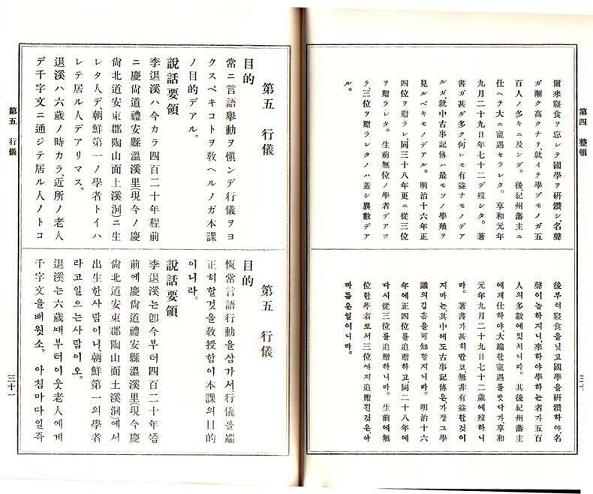 第四 整頓
爾來寢食ヲ忘レテ國學ヲ硏鑽シ、名聲
ガ漸ク高クナリ、就イテ學ブモノガ五
百人ノ多キニ及ンダ。後、紀州藩主ニ
仕ヘテ大ニ寵遇セラレタ。享和元年
九月二十九日年七十二デ歿シタ。著
書ガ甚ダ多ク、何レモ有益ナモノデア
ルガ、就中古事記傳ハ最モソノ學殖ヲ
見ルベキモノデアル。明治十六年正
四位ヲ贈ラレ、同三十八年更ニ從三位
ヲ贈ラレタ。生前無位ノ學者デアツ
テ、三位ヲ贈ラレタノハ蓋シ異數デア
ル。
後부터寢食을닛고國學을硏鑽하야、名
聲이놉하지니、來하야學하는者가五百
人의多數에밋처나니라。其後紀州藩主
에게仕하야大端
寵遇를밧다가享和
元年九月二十九日七十二歲에歿하니
라。著書가甚히만코無非有益한것이
지마는其中에도古事記傳은가장그學
識의깁흠을可知할지니라。明治十六
年에正四位를追贈하시고、同三十八年에
다시從三位를追贈하시니라。生前에無
位한學者로서三位까지追贈된것은、아
마듬은일이니라。
三十
第五 行儀
目的
常ニ言語擧動ヲ愼ンデ行儀ヲヨ
クスベキコトヲ敎ヘルノガ本課
ノ目的デアル。
說話要領
李退溪ハ今カラ四百二十年程前
ニ慶尙道禮安縣溫溪里現今ノ慶
尙北道安東郡陶山面土溪洞ニ生
レタ人デ、朝鮮第一ノ學者トイハ
レテ居ル人デアリマス。
退溪ハ六歲ノ時カラ、近所ノ老人
デ千字文ニ通ジテ居ル人ノトコ
第五 行儀
目的
恆常言語行動을삼가서、行儀를端
正히할것을敎授함이本課의目的
이니라。
說話要領
李退溪는卽今부터四百二十年쯤
前에慶尙道禮安縣溫溪里現今慶
尙北道安東郡陶山面土溪洞에서
出生한사람이니、朝鮮第一의學者
라고일으는사람이오。
退溪는六歲때부터이웃老人에게
千字文을배웟소。아침마다일즉
第五 行儀
三十一